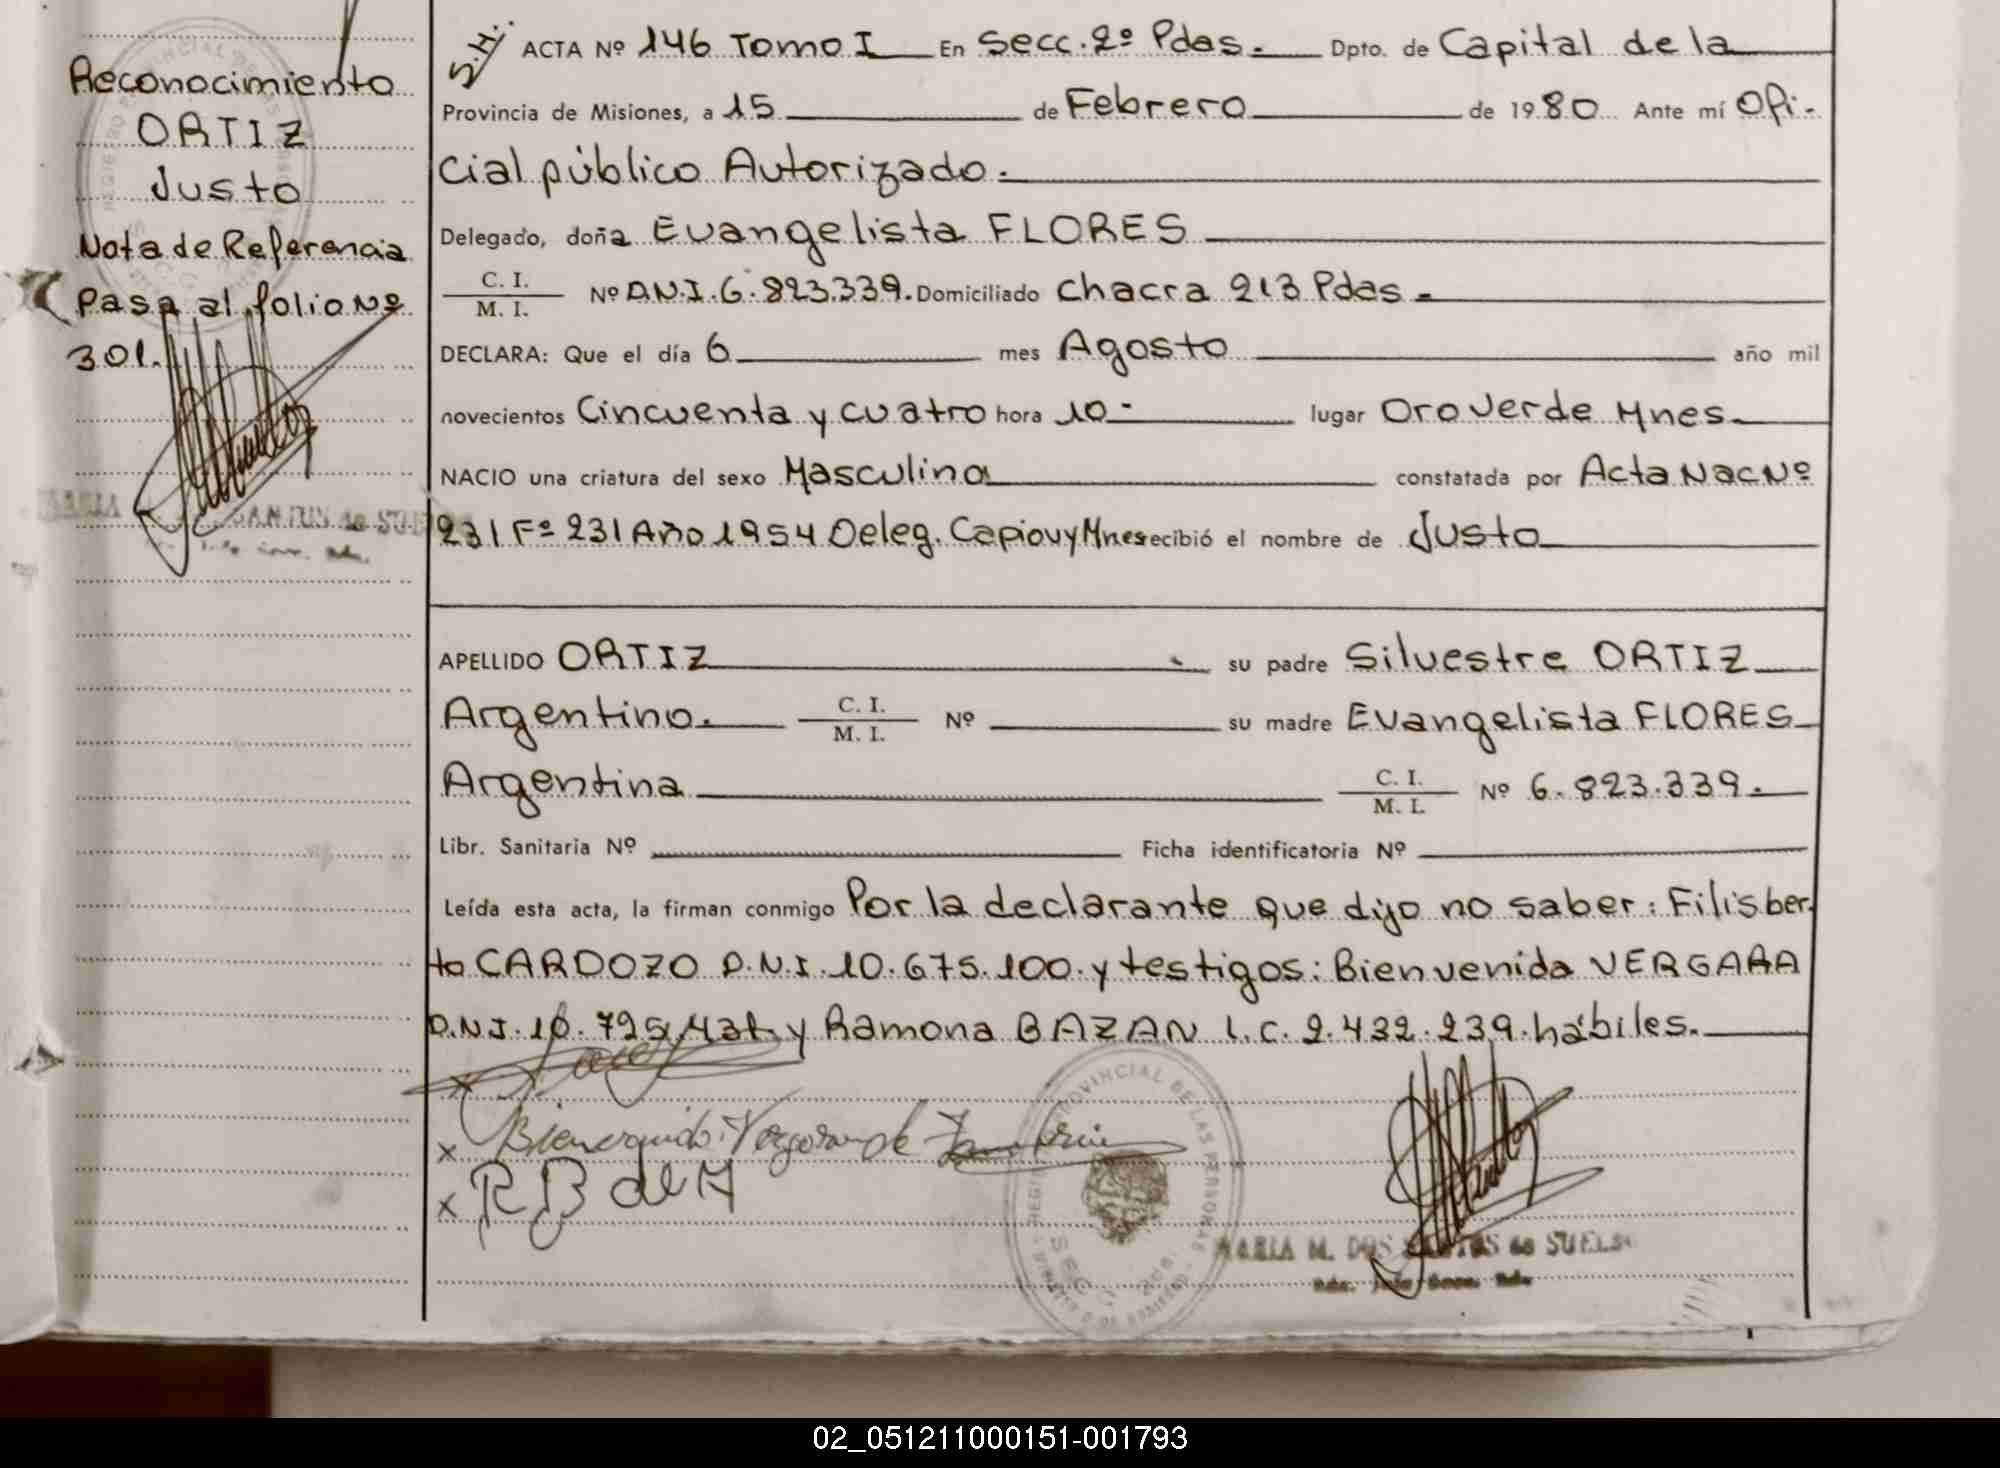 Reconocimiento
ORTIZ
Justo
Nota de Referencia
Pasa al folio Nº
301.
S.H.
ACTA Nº 146 Tomo I En Secc. 2º Pdas. Dpto. de Capital de la
Provincia de Misiones, a 15 de Febrero de 1980 Ante mí Ofi-
cial público Autorizado.
Delegado, doña Evangelista FLORES
C. I.
M. I. Nº D.N.I. 6.823.339. Domiciliado Chacra 213 Pdas.
DECLARA: Que el día 6 mes Agosto año mil
novecientos Cincuenta y cuatro hora 10- lugar Oro Verde Mnes.
NACIO una criatura del sexo Masculino constatada por Acta Nac Nº
231 Fº 231 Año 1954 Deleg. Capiovy Mnes recibió el nombre de Justo
APELLIDO ORTIZ su padre Silvestre ORTIZ
Argentino. C. I.
M. I. Nº su madre Evangelista FLORES
Argentina C. I.
M. I. Nº 6.823.339.
Libr. Sanitaria Nº Ficha identificatoria Nº
Leída esta acta, la firman conmigo Por la declarante que dijo no saber: Filisber-
to CARDOZO D.N.I. 10.675.100. y testigos: Bienvenida VERGARA
D.N.I. 10.725. y Ramona BAZAN L.C. 2.432.239. hábiles.
x
x Bienvenida Vergara de
x R B de A
REGISTRO PROVINCIAL DE LAS PERSONAS
MARIA M. DOS SANTOS de SUELDO
02_051211000151-001793